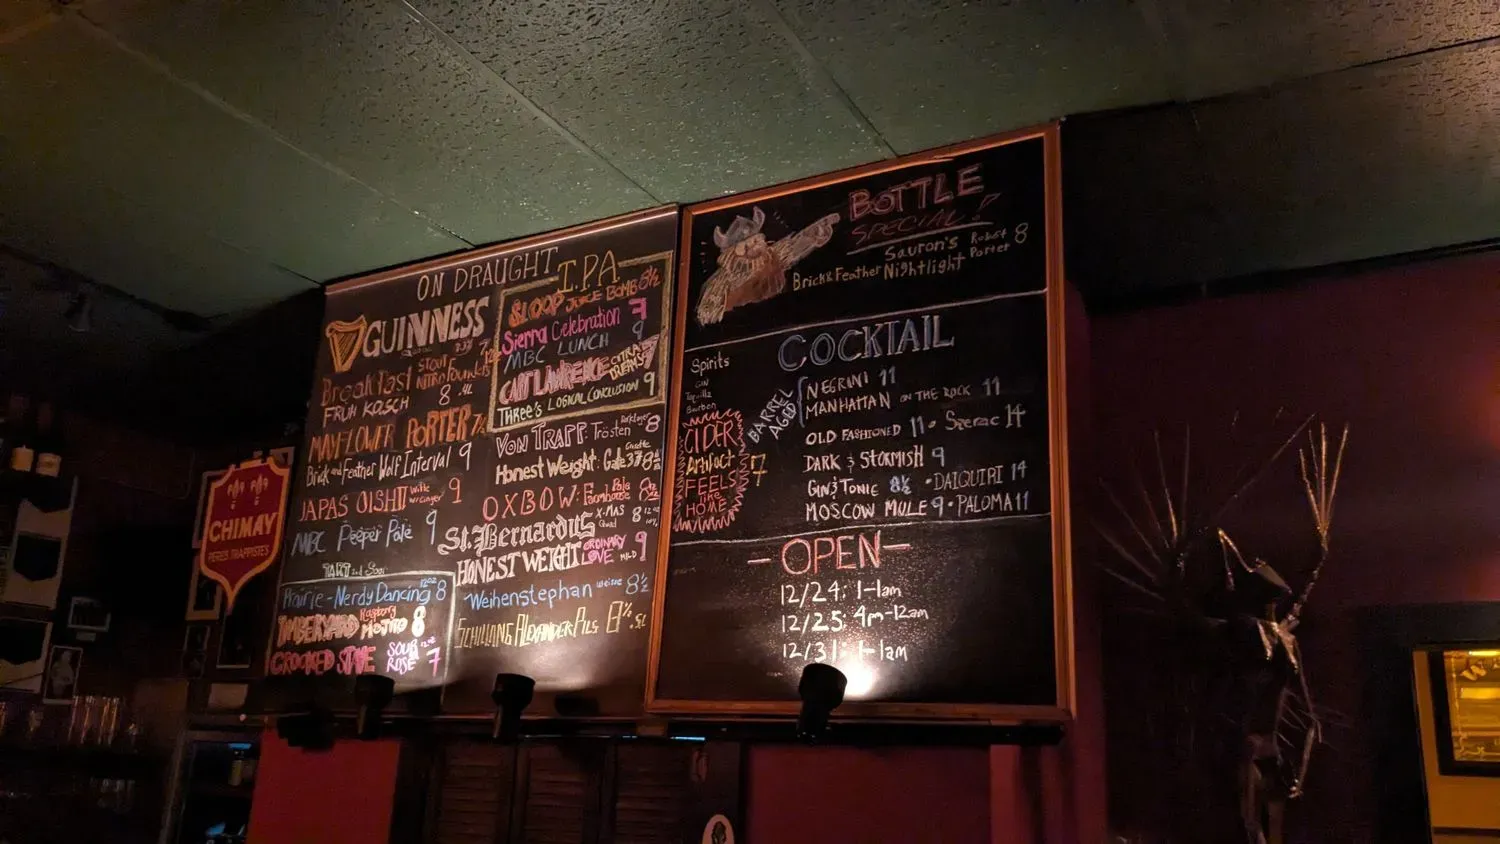 ON DRAUGHT
GUINNESS
Breakfast STOUT
NITRO Founders
FRUH KOLSCH 8 .4L
MAYFLOWER PORTER 7½
Brick and Feather Wolf Interval 9
JAPAS OISHII 9
MBC Peeper Pale 9
TART and Sour
Prairie - Nerdy Dancing 12oz 8
TIMBERYARD Raspberry MOJITO 8
CROOKED STAVE SOUR ROSE 12oz 7
I.PA
SLOOP JUICE BOMB 8½
Sierra Celebration 7
MBC LUNCH 9
CANT LAWRENCE CITRA DREAMS 7
THREE'S LOGICAL CONCLUSION 9
VON TRAPP: Trösten Dark Lager 8
Honest Weight: Gate 37 8½
OXBOW: Pale Farmhouse 8½
St. Bernardus X-MAS Quad 8
HONEST WEIGHT ORDINARY LOVE MILD 9
Weihenstephan weisse 8½
SCHILLING ALEXANDER PILS 8½ .5L
BOTTLE
SPECIAL!
Sauron's Robust Porter 8
Brick & Feather Nightlight
COCKTAIL
Spirits
GIN
Tequilla
Bourbon
BARREL AGED
NEGRINI 11
MANHATTAN ON THE ROCK 11
OLD FASHIONED 11 • Szerac 14
DARK & STORMISH 9
GIN & TONIC 8½ • DAIQUIRI 14
MOSCOW MULE 9 • PALOMA 11
CIDER
Artifact
FEELS
like
HOME
7
- OPEN -
12/24: 1-1am
12/25: 4pm-12am
12/31: 1-1am
CHIMAY
PERES TRAPPISTES